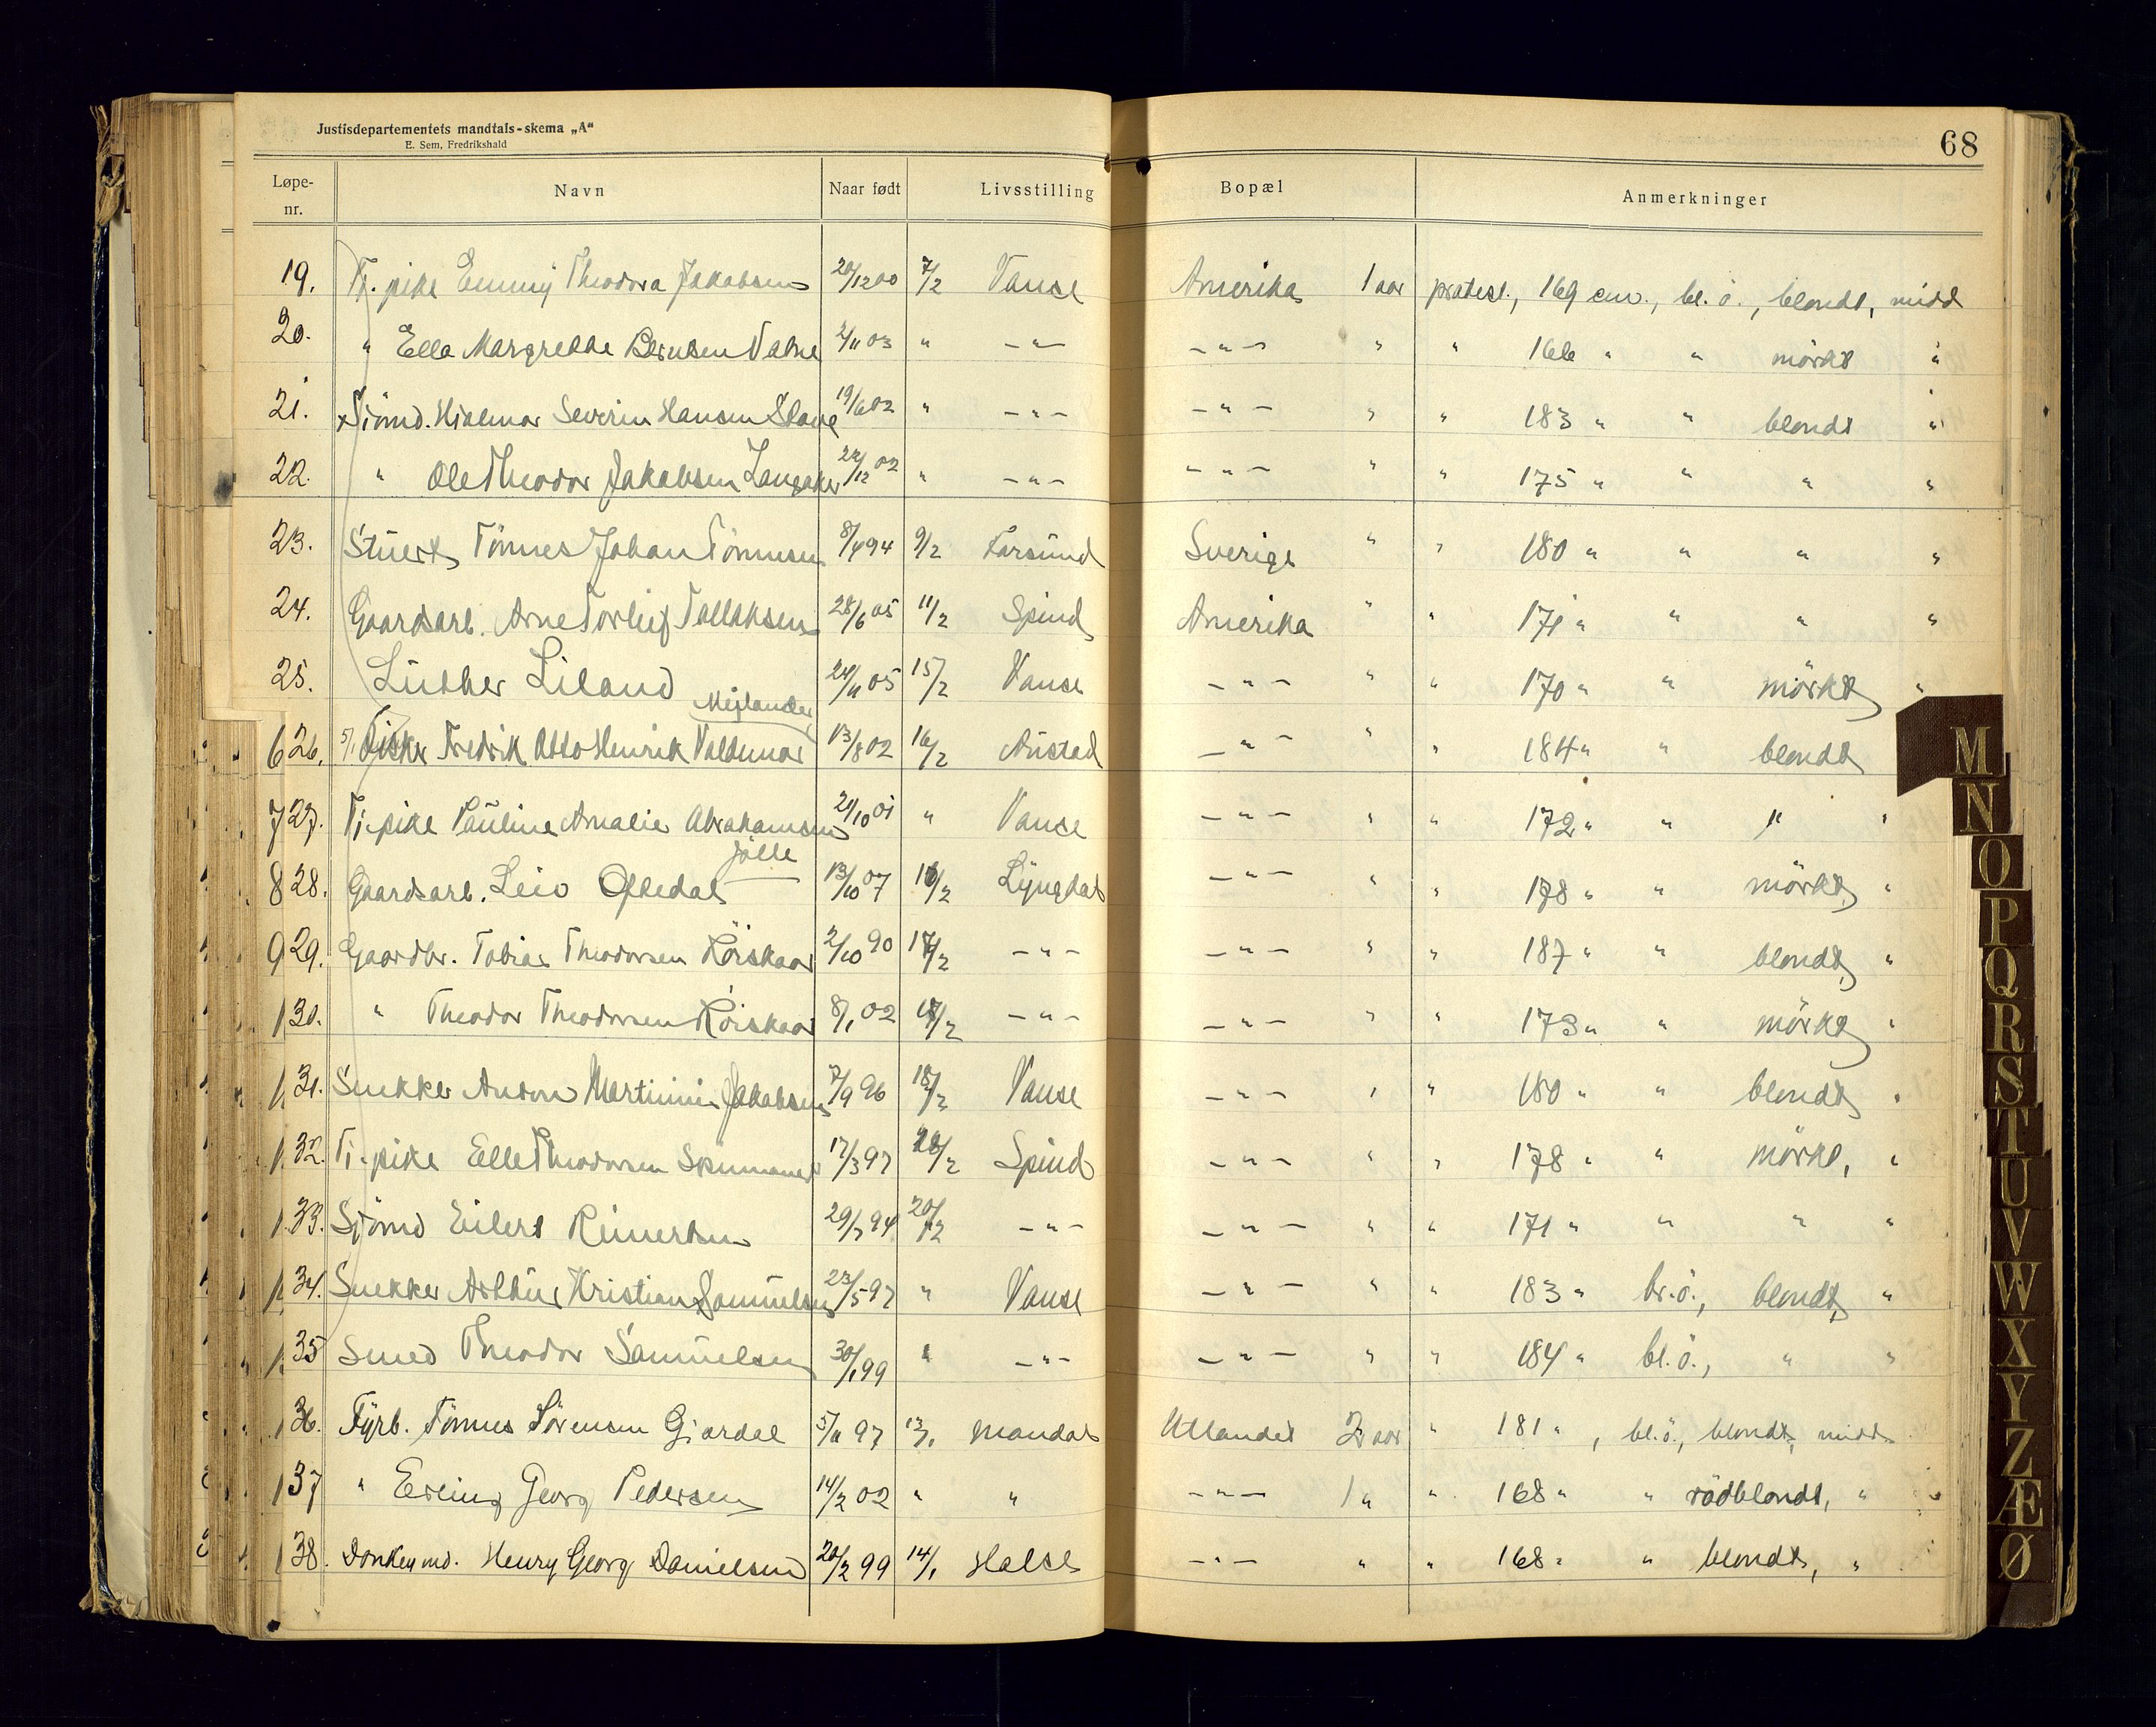 Justisdepartementets mandtals-skema „A“
E. Sem, Fredrikshald
68
Løpe-nr. Navn Naar født Livsstilling Bopæl Anmerkninger
19. Tj. pike Emmy Theodora Jakobsen 20/12 00 7/2 Vanse Amerika 1 aar protest., 169 cm., bl. ö., blondt, midd
20. " Ella Margrethe Berntsen Vatne 2/11 03 " -"- -"- " " 166 " " mörkt "
21. Sjömd. Hjalmar Severin Hansen Stave 19/6 02 " -"- -"- " " 183 " " blondt "
22. " Ole Theodor Jakobsen Langaker 22/12 02 " -"- -"- " " 175 " " " "
23. Stuert Tönnes Johan Tönnesen 8/4 94 9/2 Farsund Sverige " " 180 " " " "
24. Gaardsarb. Arne Torleif Tallaksen 28/6 05 11/2 Spind Amerika " " 171 " " " "
25. Luther Liland 24/11 05 15/2 Vanse -"- " " 170 " " mörkt "
Mejlander
26. 5/1 Fisker Fredrik Otto Henrik Valdemar 13/8 02 16/2 Austad -"- " " 184 " " blondt
27. Tj. pike Pauline Amalie Abrahamsen 21/10 01 " Vanse -"- " " 172 " " " "
Jölle
28. Gaardsarb. Leiv Oftedal 13/10 07 16/2 Lyngdal -"- " " 178 " " mörkt, "
29. Gaardbr. Tobias Theodorsen Röiskaar 2/10 90 17/2 -"- -"- " " 187 " " blondt, "
30. " Theodor Theodorsen Röiskaar 8/1 02 18/2 -"- -"- " " 173 " " mörkt "
31. Snekker Anton Martinius Jakobsen 7/9 96 18/2 Vanse -"- " " 180 " " blondt "
32. Tj. pike Elle Theodorsen 17/3 97 /2 Spind -"- " " 178 " " mörkt, "
33. Sjömd Eilert Reinertsen 29/7 94 20/2 -"- -"- " " 171 " " " "
34. Snekker Arthur Kristian Samuelsen 23/5 97 " Vanse -"- " " 183 " br. ö., blondt, "
35 Smed Theodor Samuelsen 30/1 99 " -"- -"- " " 184 " bl. ö., " "
36. Fyrb. Tönnes Sörensen Gjerdal 5/11 97 13/1 Mandal Utlandet 2 aar " 181 ", bl. ö., blondt, midd.
37 " Erling Georg Pedersen 14/2 02 " " -"- 1 " " 168 " " rödblondt, "
38. Donkeymd. Henry Georg Danielsen 20/2 99 14/1 Halse -"- " " 168 " " blondt, "
M
N
O
P
Q
R
S
T
U
V
W
X
Y
Z
Æ
Ø